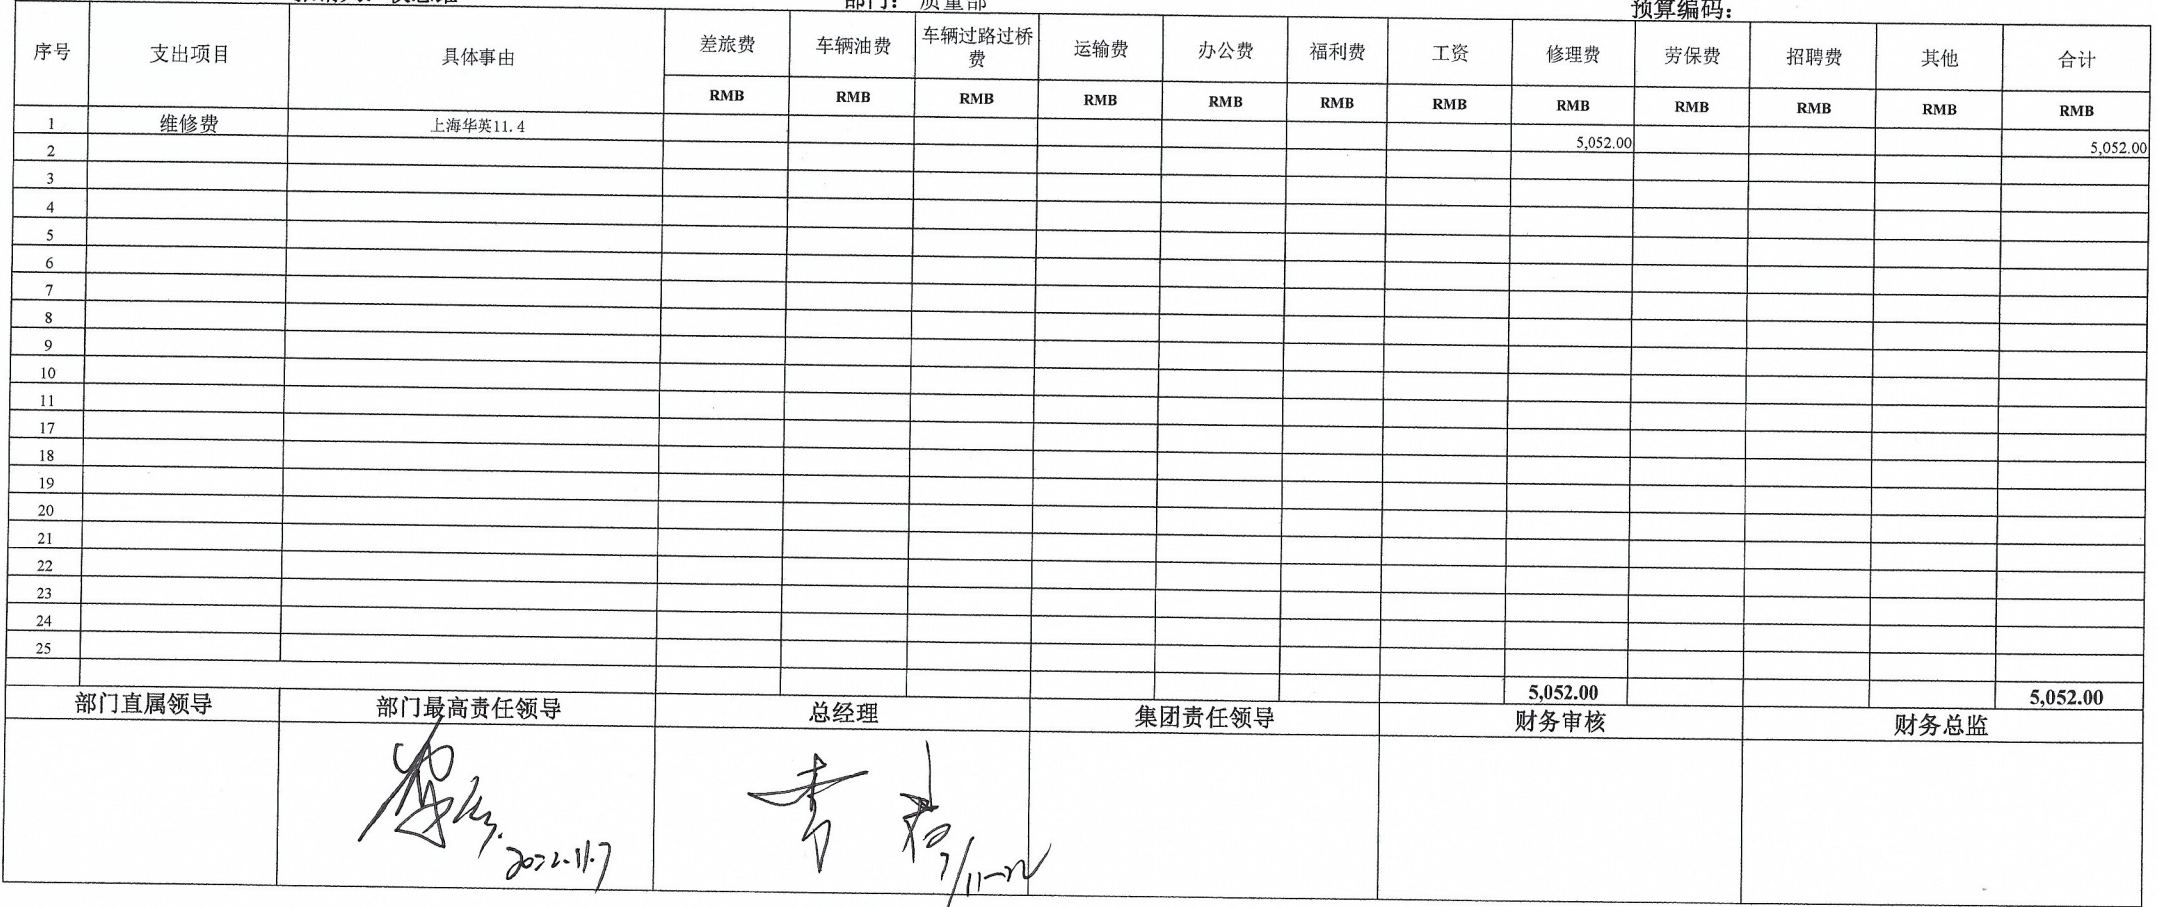 部门： 质量部 预算编码：
序号 支出项目 具体事由 差旅费 车辆油费 车辆过路过桥费 运输费 办公费 福利费 工资 修理费 劳保费 招聘费 其他 合计
RMB RMB RMB RMB RMB RMB RMB RMB RMB RMB RMB RMB
1 维修费 上海华英11.4 5,052.00 5,052.00
2
3
4
5
6
7
8
9
10
11
17
18
19
20
21
22
23
24
25
5,052.00 5,052.00
部门直属领导 部门最高责任领导 总经理 集团责任领导 财务审核 财务总监
2022.11.7 7/11-22